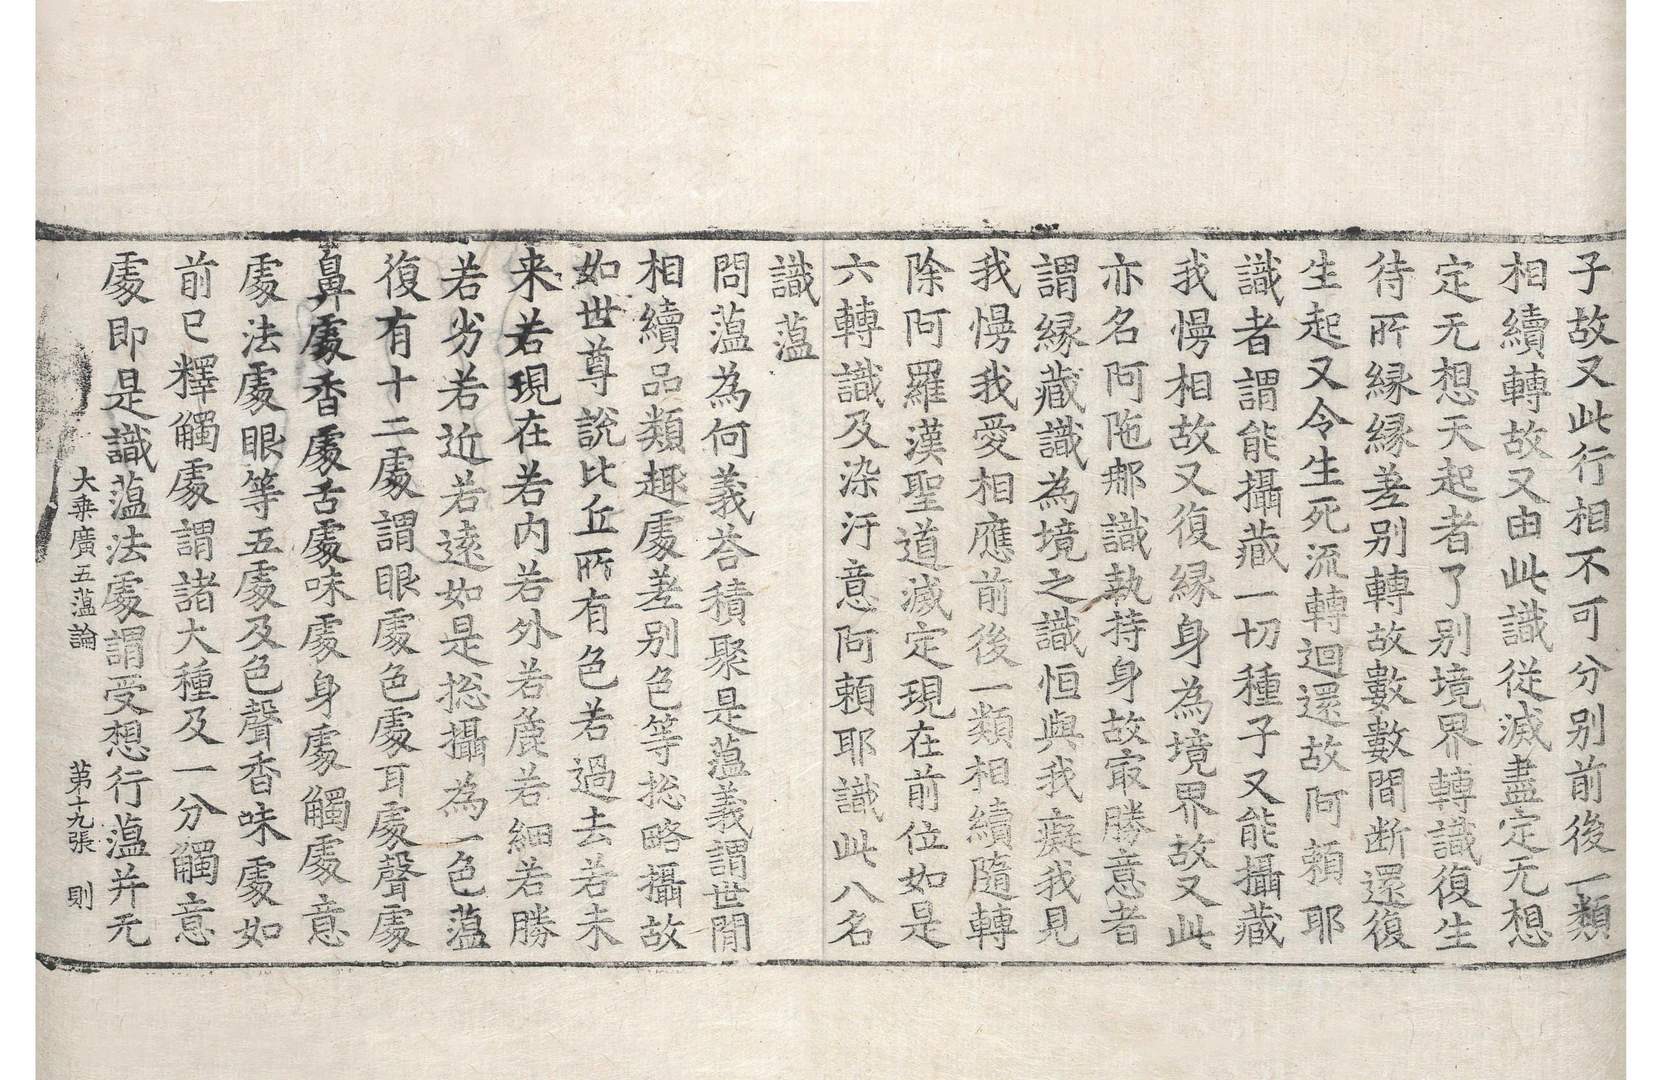 子故又此行相不可分别前後一類
相續轉故又由此識從滅盡定无想
定无想天起者了别境界轉識復生
待所縁縁差别轉故數數間断還復
生起又令生死流轉迴還故阿頼耶
識者謂能攝藏一切種子又能攝藏
我慢相故又復縁身為境界故又此
亦名阿陁那識執持身故㝡勝意者
謂縁藏識為境之識恒與我癡我見
我慢我愛相應前後一類相續隨轉
除阿羅漢聖道滅定現在前位如是
六轉識及染汙意阿頼耶識此八名
識薀
問薀為何義荅積聚是薀義謂世閒
相續品類趣處差别色等捴略攝故
如世尊說比丘所有色若過去若未
来若現在若内若外若麁若細若勝
若劣若近若遠如是捴攝為一色薀
復有十二處謂眼處色處耳處聲處
鼻處香處舌處味處身處觸處意
處法處眼等五處及色聲香味處如
前已釋觸處謂諸大種及一分觸意
處即是識薀法處謂受想行薀并无
大乗廣五薀論 苐十九張 則